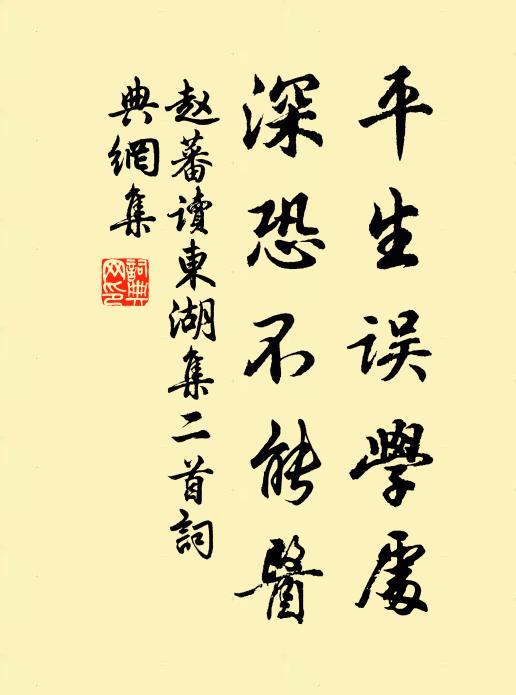 平生误學處
深恐不能醫
赵蕃讀東湖集二首詞
典網集
詞典网印